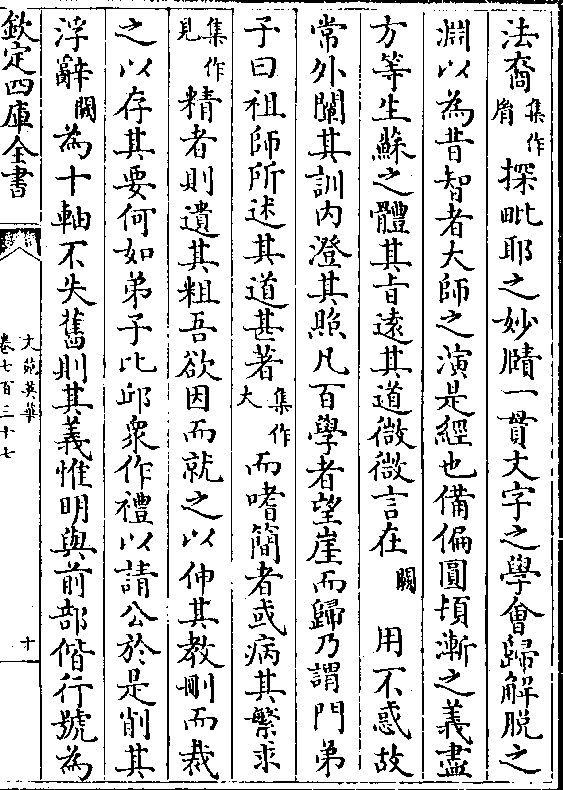 法裔集作胄探毗耶之妙賾一貫文字之學會歸解脱之
淵以為昔智者大師之演是經也備偏圓頓漸之義盡
方等生蘇之體其旨遠其道微微言在闕用不惑故
常外闡其訓内澄其照凡百學者望崖而歸乃謂門弟
子曰祖師所述其道甚著集作大而嗜簡者或病其繁求
集作見精者則遺其粗吾欲因而就之以伸其教刪而裁
之以存其要何如弟子比邱衆作禮以請公於是削其
浮辭闕為十軸不失舊則其義惟明與前部偕行號為
欽定四庫全書
文苑英華
卷七百三十七
十